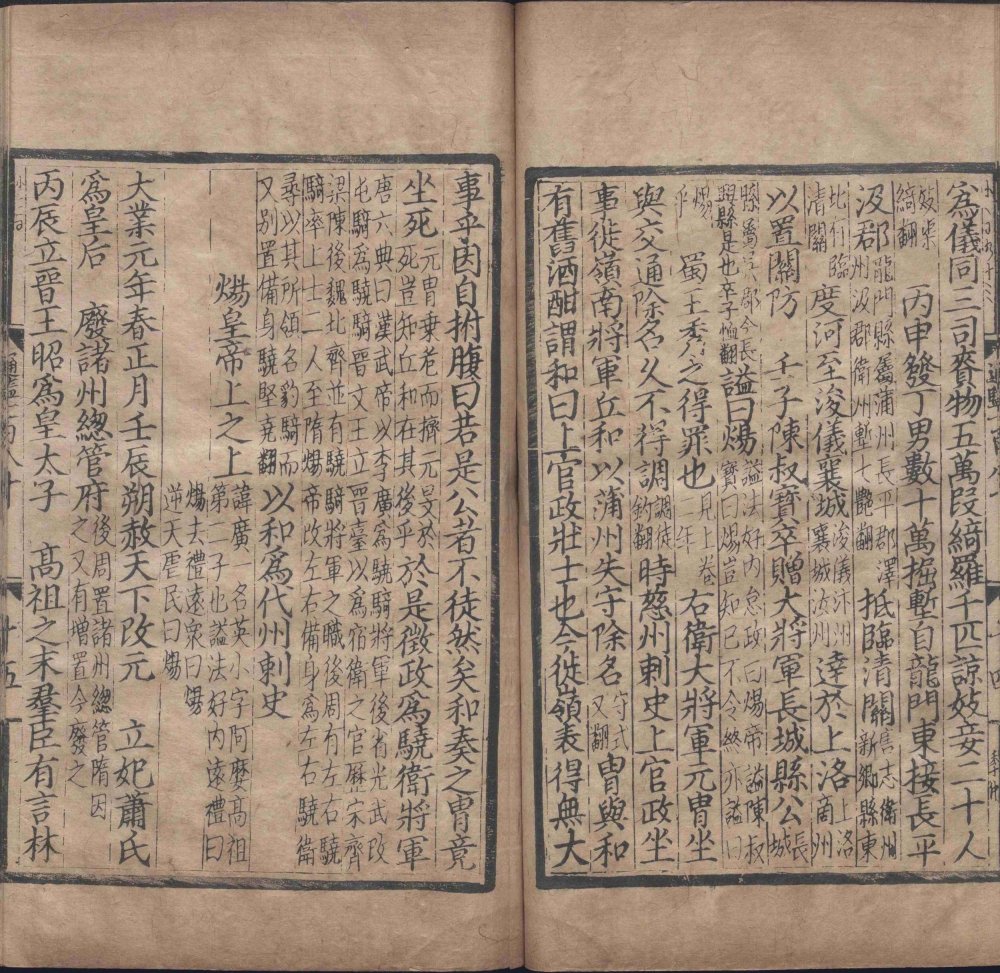 為儀同三司賚物五萬段綺羅千匹諒妓妾二十人
妓渠綺翻 丙申發丁男數十萬掘塹自龍門東接長平
汲郡龍門縣屬蒲州長平郡澤州汲郡衛州塹七豔翻抵臨清關舊志衛州新鄉縣東
北有臨清關度河至浚儀襄城浚儀汴州襄城汝州達於上洛上洛商州
以置關防 壬子陳叔寶卒贈大將軍長城縣公長城
縣屬吳郡今長興縣是也卒子恤翻諡曰煬諡法好內怠政曰煬帝諡陳叔寶曰煬豈知己不令終亦諡曰
煬乎 蜀王秀之得罪也見上卷二年右衛大將軍元冑坐
與交通除名久不得調調徒釣翻時慈州刺史上官政坐
事徙嶺南將軍丘和以蒲州失守除名守式又翻冑與和
有舊酒酣謂和曰上官政壯士也今徙嶺表得無大
事乎因自拊腹曰若是公者不徒然矣和奏之冑竟
坐死元冑乘老而擠元旻於死豈知丘和在其後乎於是徵政為驍衛將軍
唐六典曰漢武帝以李廣為驍騎將軍後省光武改屯騎為驍騎晉文王立晉臺以為宿衛之官歷宋齊
梁陳後魏北齊並有驍騎將軍之職後周有左右驍騎率上士二人至隋煬帝改左右備身為左右驍衛
尋以其所領名豹騎而又別置備身驍堅堯翻以和為代州刺史
煬皇帝上之上諱廣一名英小字阿麼高祖第二子也諡法好內遠禮曰
煬去禮遠衆曰煬逆天虐民曰煬
大業元年春正月壬辰朔赦天下改元 立妃蕭氏
為皇后 廢諸州總管府後周置諸州總管隋因之又有增置今廢之
丙辰立晉王昭為皇太子 高祖之末羣臣有言林